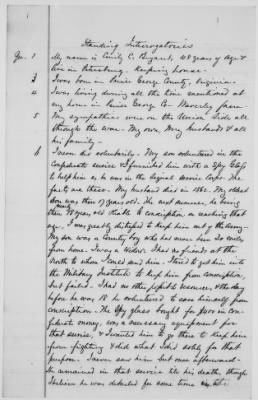 Standing Interrogatories
Qu. 1 My name is Emily C. Bryant, 48 years of age &
live in Petersburg. Keeping house.
3 I was born in Prince George County, Virginia.
4 I was living during all the time mentioned at
my home in Prince George Co Waverley farm.
5 My sympathies were on the Union side all
through the war. My son, my husbands & all
his family.
6 I never did voluntarily. My son volunteered in the
Confederate service & I furnished him with a Spy Glass
to help him as he was in the signal service Corps. The
facts are these. My husband died in 1862. My oldest
son was then 17 years old. The next summer, he being
then 18 years old liable to conscription, on reaching that
age, I was greatly distressed to keep him out of the army.
My son was a Country boy who had never been
from home. I was a widow. I had no friends at the
North to whom I could send him. I tried to get him into
the Military Institute to keep him from conscription,
but failed. I had no other resource, & the day
before he was 18 he volunteered to save himself from
conscription. The Spy glass bought for in con-
federate money, was a necessary equipment for
that service, & I wanted him to go there to keep him
from fighting & did what I did solely for that
purpose. I never saw him but once afterward.
He remained in that service till his death, though
I believe he was detailed for some time